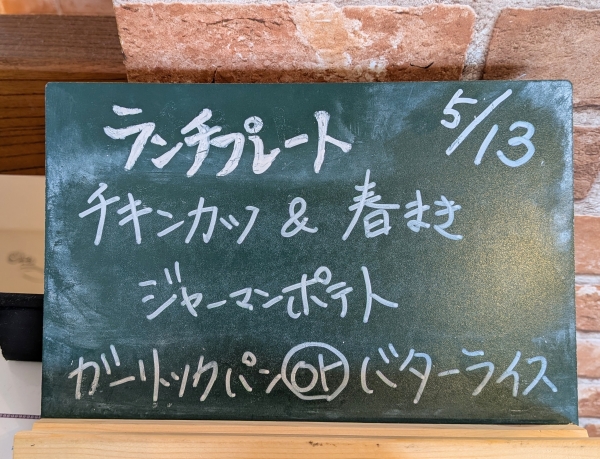 ランチプレート 5/13
チキンカツ & 春まき
ジャーマンポテト
ガーリックパン or バターライス